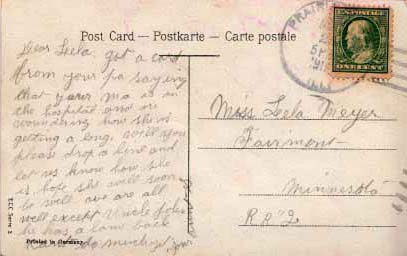 Post Card — Postkarte — Carte postale
Dear Leela got a card
from your pa saying
that your ma is in
the hospital and are
woundering how she is
getting a long. will you
please drop a line and
let us know how she
is hope she will soon
be well. we are all
well except Uncle John
he has a lame back
cant do much yet
Miss Leela Meyer
Fairmont
Minnesota
R R 2
PRAIRI
ILL
ONE CENT
T.C.C. Serie 2
Printed in Germany